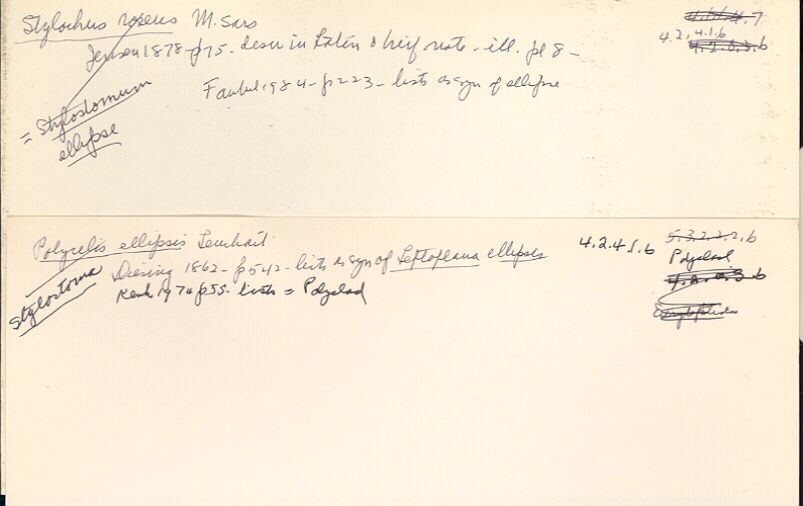 Stylochus roseus M. Sars
4.2.4.1.6
Jensen 1878 - p75. descr in Latin & brief note - ill. pl 8 -
Faubel 1984 - p223 - lists as syn of ellipse
= Stylostomum
ellipse
Polycelis ellipsis Leuckart
4.2.4.1.6
5.3.2.2.2.6
Diesing 1862 - p542 - lists as syn of Leptoplana ellipsis
Polyclad
Kenk 1974 p55. lists = Polyclad
Stylostoma